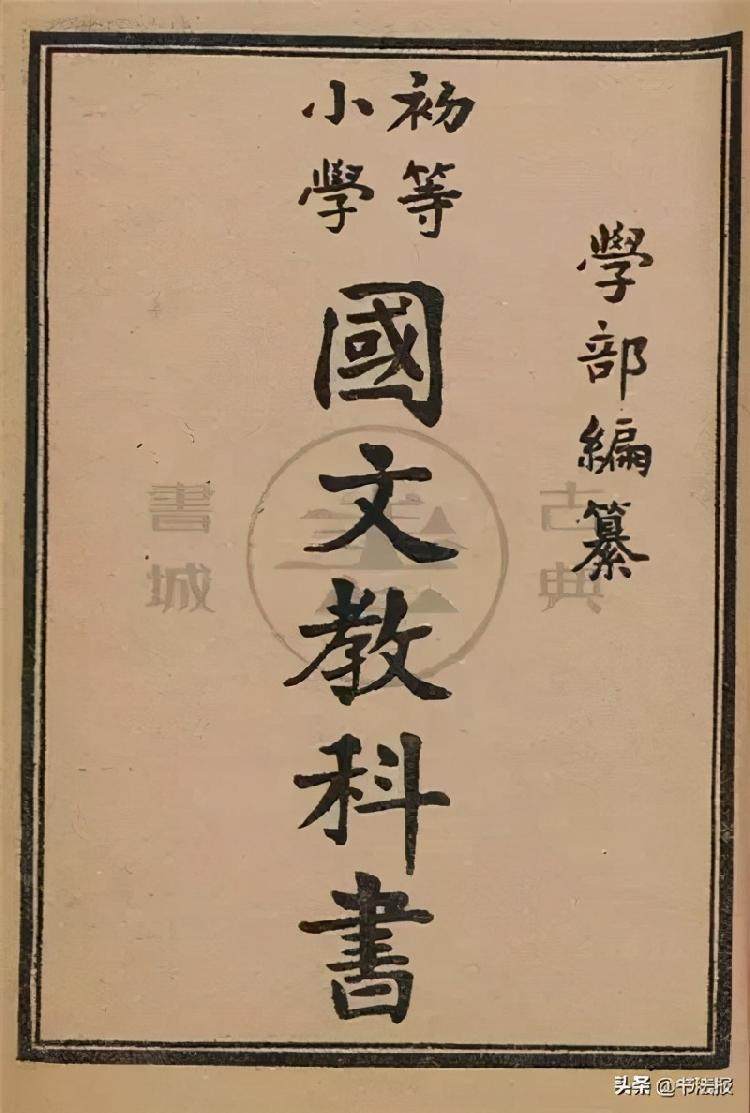 學部編纂
初等
小學
國文教科書
古典
書城
头条 @书法报